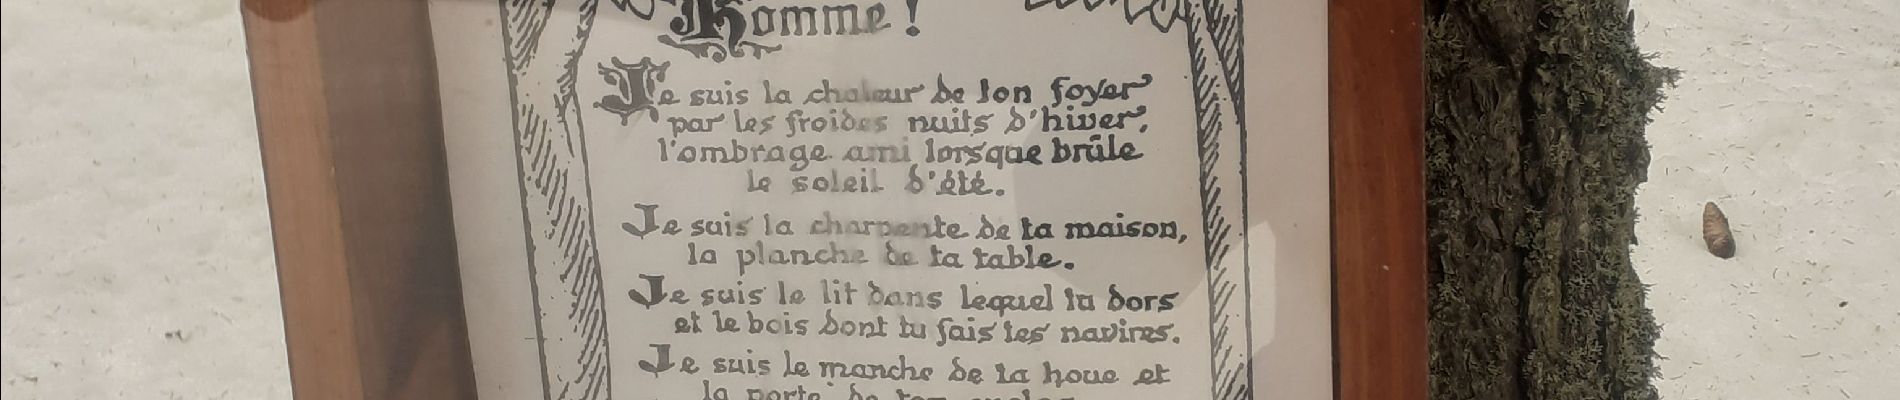 Homme !
Je suis la chaleur de ton foyer
par les froides nuits d'hiver,
l'ombrage ami lorsque brûle
le soleil d'été.
Je suis la charpente de ta maison,
la planche de ta table.
Je suis le lit dans lequel tu dors
et le bois dont tu fais tes navires.
Je suis le manche de ta houe et
la porte de ton enclos